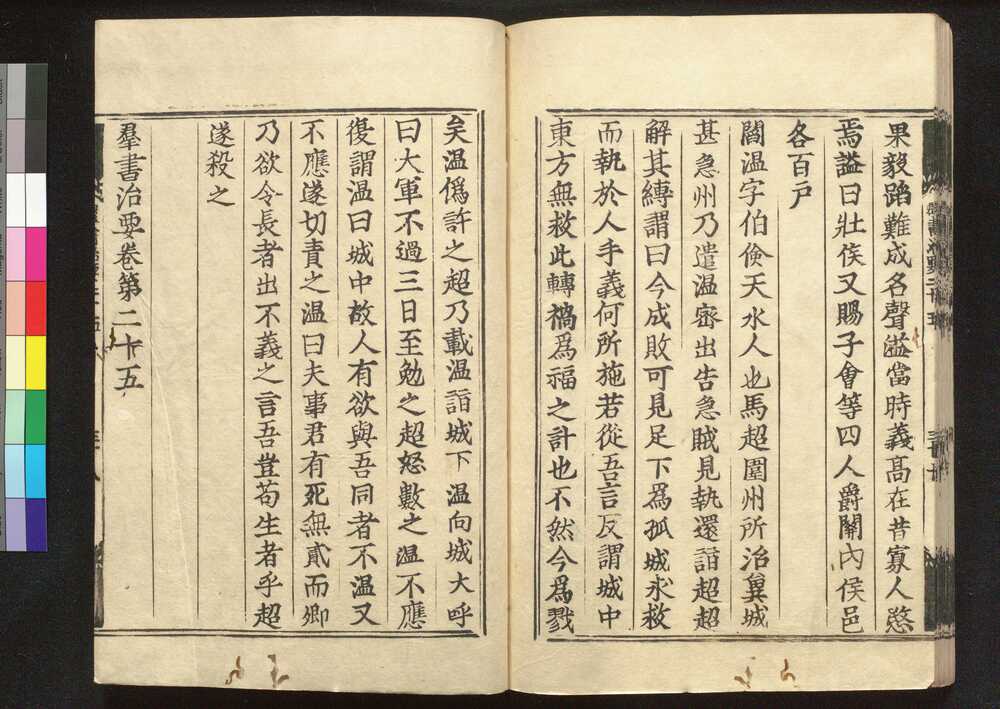 果毅蹈難成名聲溢當時義髙在昔寡人愍
焉謚曰壯侯又賜子會等四人爵關內侯邑
各百戶
閻溫字伯儉天水人也馬超圍州所治兾城
甚急州乃遣溫密出告急賊見執還詣超超
解其縛謂曰今成敗可見足下爲孤城求救
而執於人手義何所施若從吾言反謂城中
東方無救此轉禍爲福之計也不然今爲戮
矣溫僞許之超乃載溫詣城下溫向城大呼
曰大軍不過三日至勉之超怒數之溫不應
復謂溫曰城中故人有欲與吾同者不溫又
不應遂切責之溫曰夫事君有死無貳而卿
乃欲令長者出不義之言吾豈苟生者乎超
遂殺之
羣書治要卷第二十五